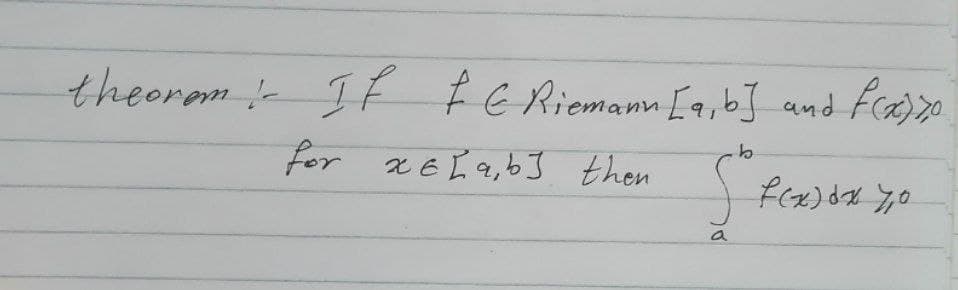 theorem :- If f ∈ Riemann [a,b] and f(x)⩾0
for x ∈ [a,b] then ∫_a^b f(x)dx ⩾0